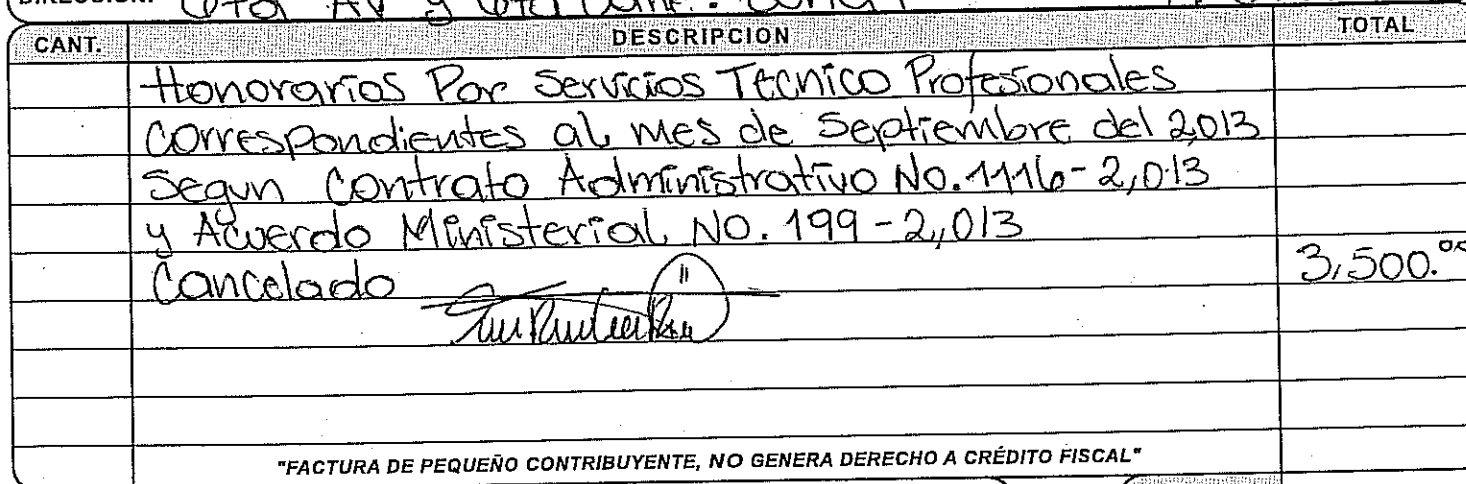 CANT. DESCRIPCION TOTAL
Honorarios Por Servicios Tecnico Profesionales
Correspondientes al mes de Septiembre del 2,013
Segun Contrato Administrativo No. 1116-2,013
y Acuerdo Ministerial No. 199-2,013
Cancelado 3,500.00
"FACTURA DE PEQUEÑO CONTRIBUYENTE, NO GENERA DERECHO A CRÉDITO FISCAL"